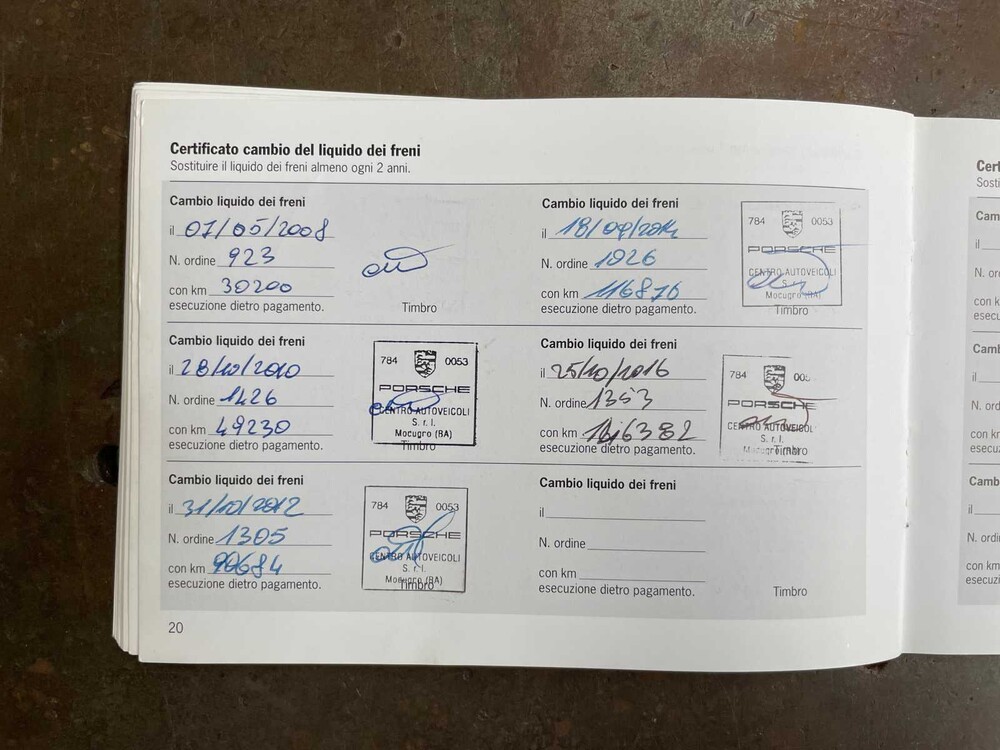 Certificato cambio del liquido dei freni
Sostituire il liquido dei freni almeno ogni 2 anni.
Cambio liquido dei freni
il 07/05/2008
N. ordine 923
con km 30200
esecuzione dietro pagamento.
Timbro
Cambio liquido dei freni
il 28/10/2010
N. ordine 1426
con km 49230
esecuzione dietro pagamento.
784 0053
PORSCHE
CENTRO AUTOVEICOLI
S. r. l.
Mocugro (BA)
Timbro
Cambio liquido dei freni
il 31/10/2012
N. ordine 1305
con km
esecuzione dietro pagamento.
784 0053
PORSCHE
CENTRO AUTOVEICOLI
S. r. l.
Mocugro (BA)
Timbro
Cambio liquido dei freni
il
N. ordine 1026
con km 116876
esecuzione dietro pagamento.
784 0053
PORSCHE
CENTRO AUTOVEICOLI
Mocugro (BA)
Timbro
Cambio liquido dei freni
il 25/10/2016
N. ordine 1353
con km
esecuzione dietro pagamento.
784
PORSCHE
CENTRO AUTOVEICOLI
S. r. l.
Timbro
Cambio liquido dei freni
il
N. ordine
con km
esecuzione dietro pagamento.
Timbro
20